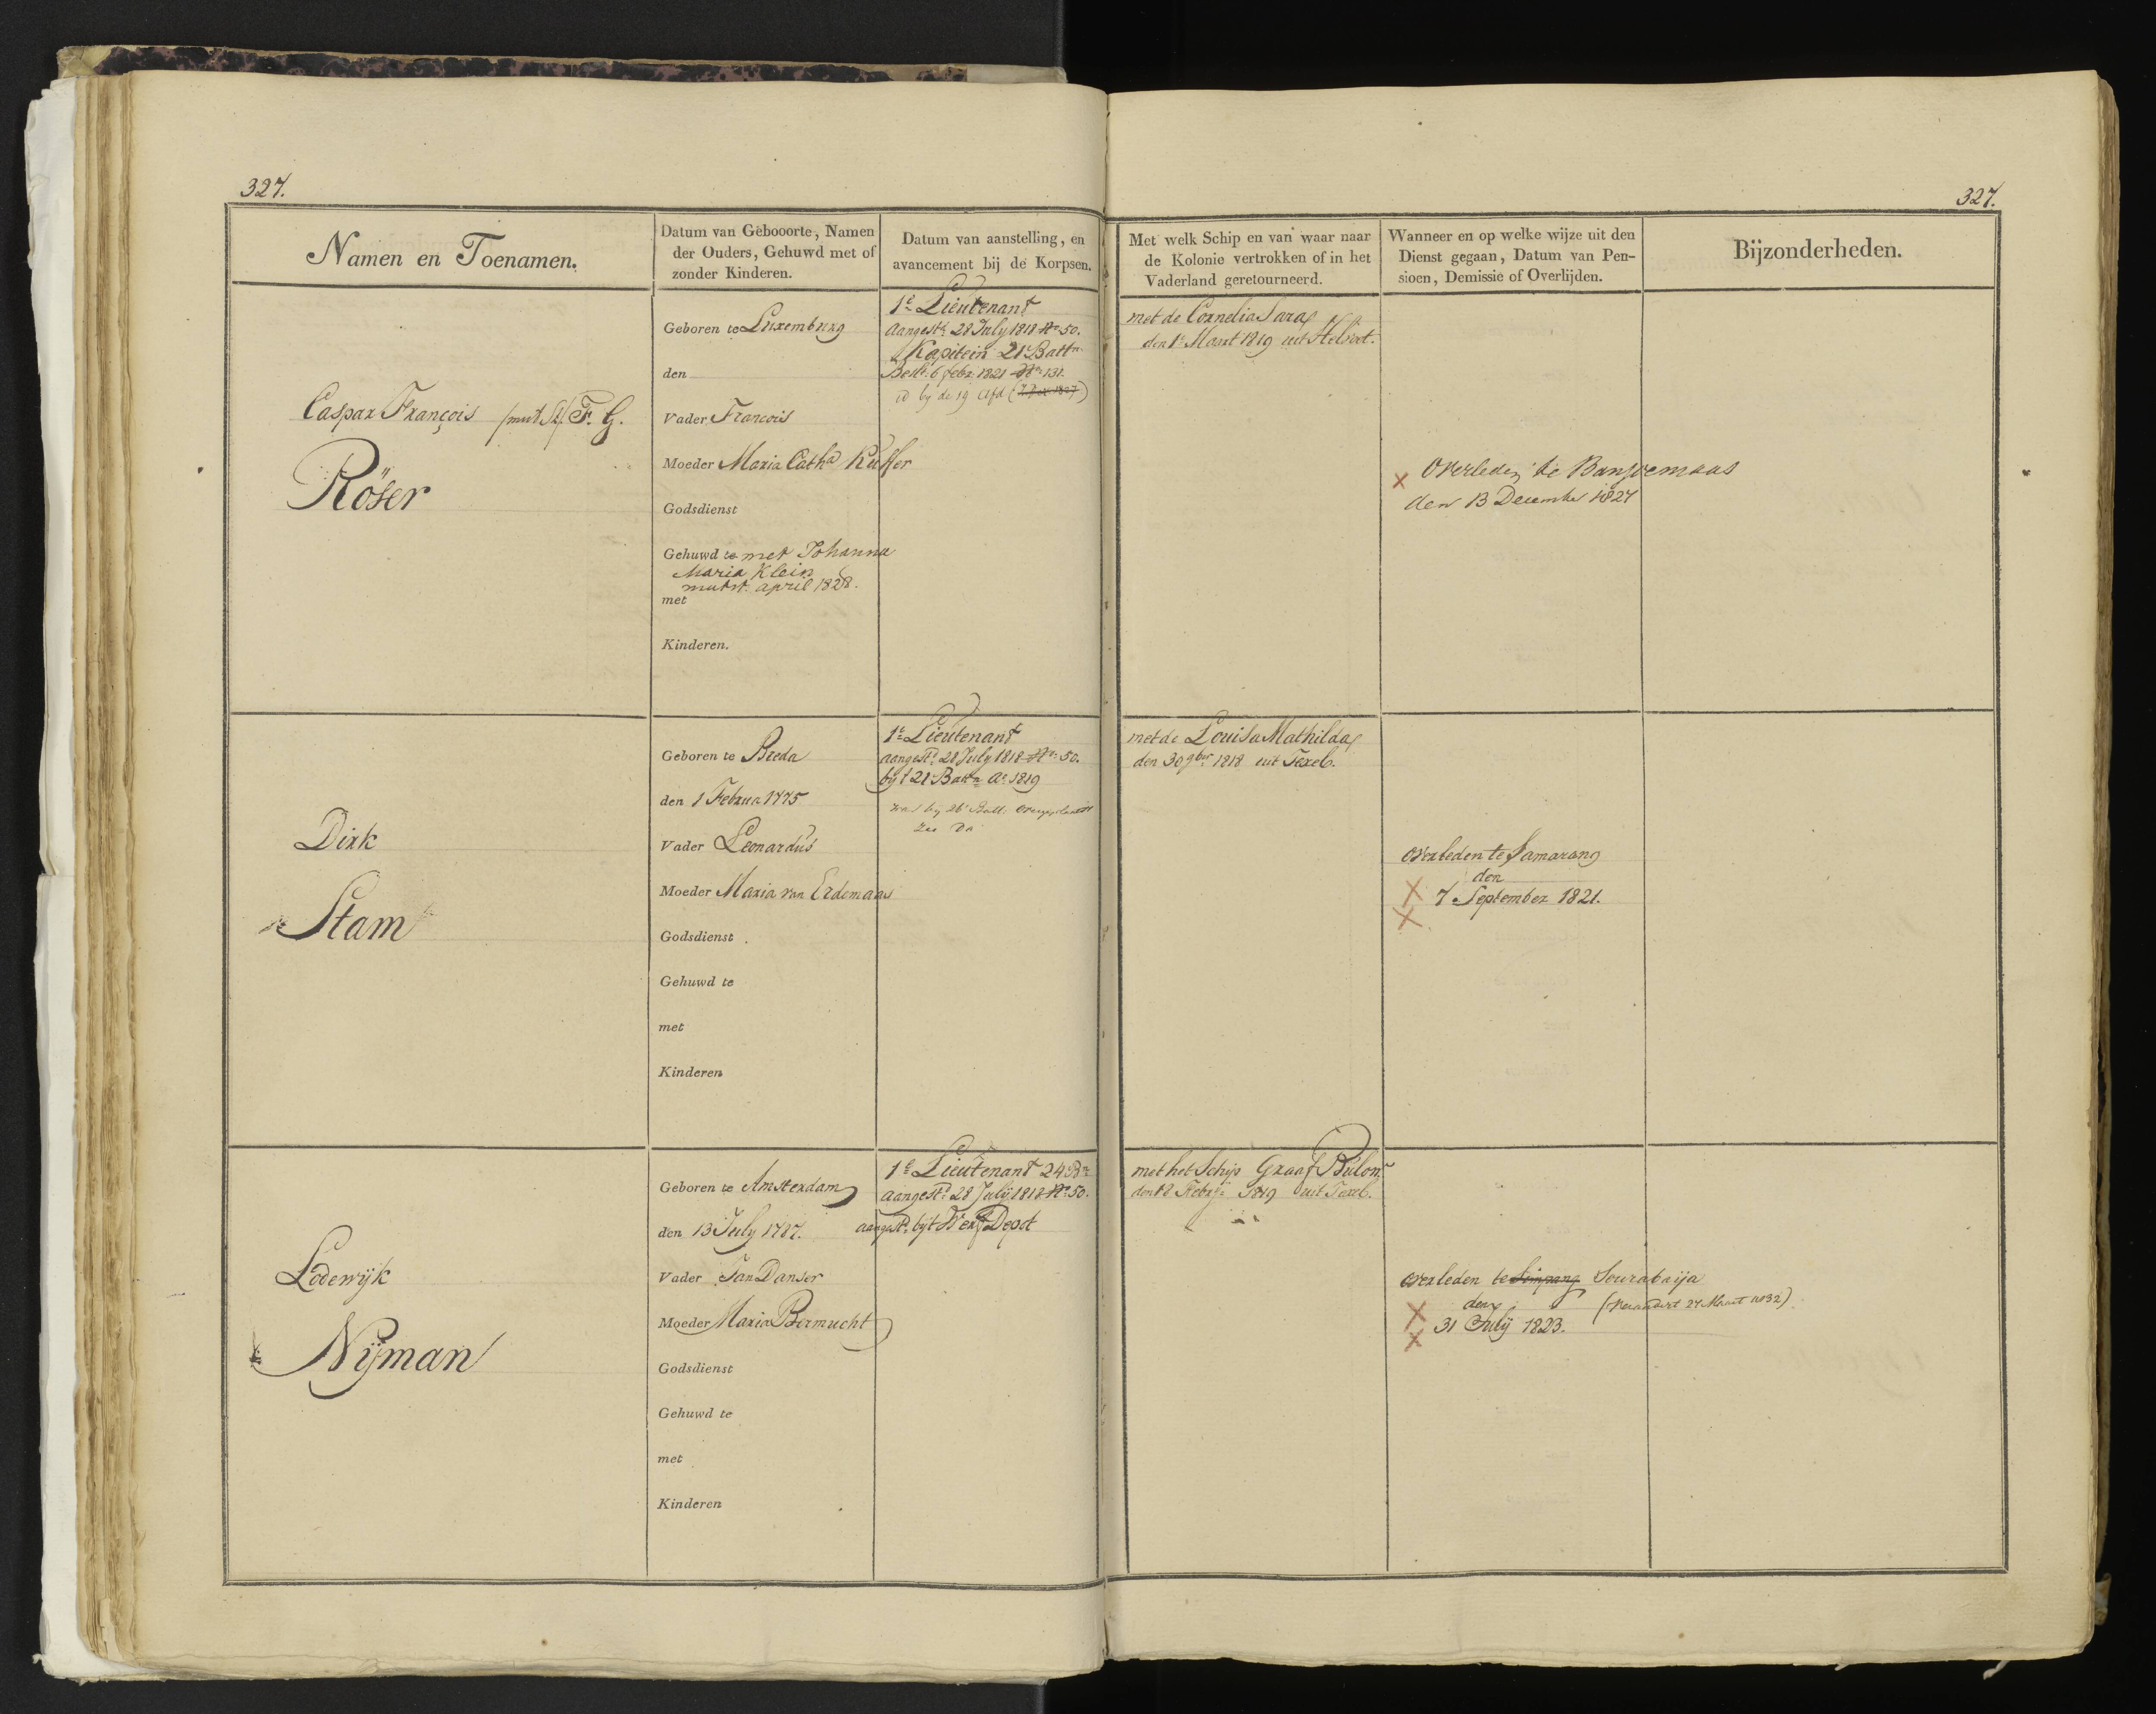 327.
327.
Namen en Toenamen.
Datum van Gebooorte, Namen
der Ouders, Gehuwd met of
zonder Kinderen.
Datum van aanstelling, en
avancement bij de Korpsen.
Met welk Schip en van waar naar
de Kolonie vertrokken of in het
Vaderland geretourneerd.
Wanneer en op welke wijze uit den
Dienst gegaan, Datum van Pen-
sioen, Demissie of Overlijden.
Bijzonderheden.
Caspar François F. G.
Röser
Geboren te Luxemburg
den
Vader Francois
Moeder Maria Catha
Godsdienst
Gehuwd te met Johanna
Maria Klein
mutst. april 1828.
met
Kinderen.
1e Lieutenant
aangest. 28 July 1818 No 50.
Kapitein 21 Battn
Beslt. 6 febr. 1821 No 131.
id by de 19 Afd
met de Cornelia Sara
den 1e Maart 1819 uit Helvoet.
Overleden te Banjoemaas
den 13 December 1827
Dirk
Stam
Geboren te Breda
den 1 Februa 1775
Vader Leonardus
Moeder Maria van Erdemaas
Godsdienst
Gehuwd te
met
Kinderen
1e Lieutenant
aangest. 28 July 1818 No 50.
byt 21 Battn Ao 1819
met de Louisa Mathilda
den 30 9ber 1818 uit Texel.
overleden te Samarang
den
7 September 1821.
Lodewijk
Nijman
Geboren te Amsterdam
den 13 July 1787.
Vader Jan Danser
Moeder Maria Bermucht
Godsdienst
Gehuwd te
met
Kinderen
1e Lieutenant 24 Bn
aangest. 28 July 1818 No 50.
aangest. byt Werf Depot
met het Schip Graaf Bülow
den 18 Febrij 1819 uit Texel.
overleden te Simpang Sourabaija
den (verandert 27 Maart no 32)
31 Julij 1823.